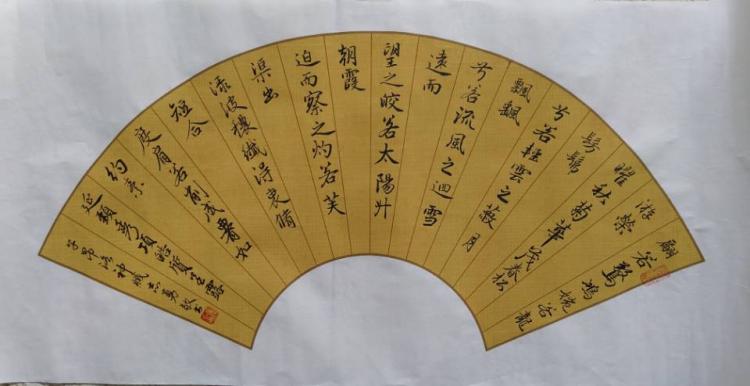 翩若驚鴻婉若龍
游榮
曜秋菊華茂春松
髣髴
兮若輕雲之蔽月
飄飄
兮若流風之迴雪
遠而
望之皎若太陽升
朝霞
迫而察之灼若芙
渠出
淥波穠纖得衷脩
短合
度肩若削成腰如
約素
延頸秀項皓質呈露
子昂洛神賦志勇敬